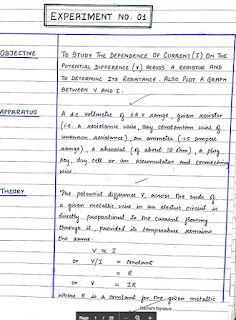 EXPERIMENT NO. 01
OBJECTIVE
TO STUDY THE DEPENDENCE OF CURRENT (I) ON THE
POTENTIAL DIFFERENCE (V) ACROSS A RESISTOR AND
TO DETERMINE ITS RESISTANCE. ALSO PLOT A GRAPH
BETWEEN V AND I.
APPARATUS
A d.c. voltmeter of 1.5 V range, given resistor
(i.e. a resistance wire, say constantan wire of
unknown resistance), an ammeter (1.5 ampere
range), a rheostat (of about 10 ohm), a plug
key, dry cell or an accumulator and connecting
wire.
THEORY
The potential difference V, across the ends of
a given metallic wire in an electric circuit is
directly proportional to the current flowing
through it, provided its temperature remains
the same.
V ∝ I
or V/I = constant
= R
or V = IR
where R is a constant for the given metallic
Teacher's Signature
Page 1 /